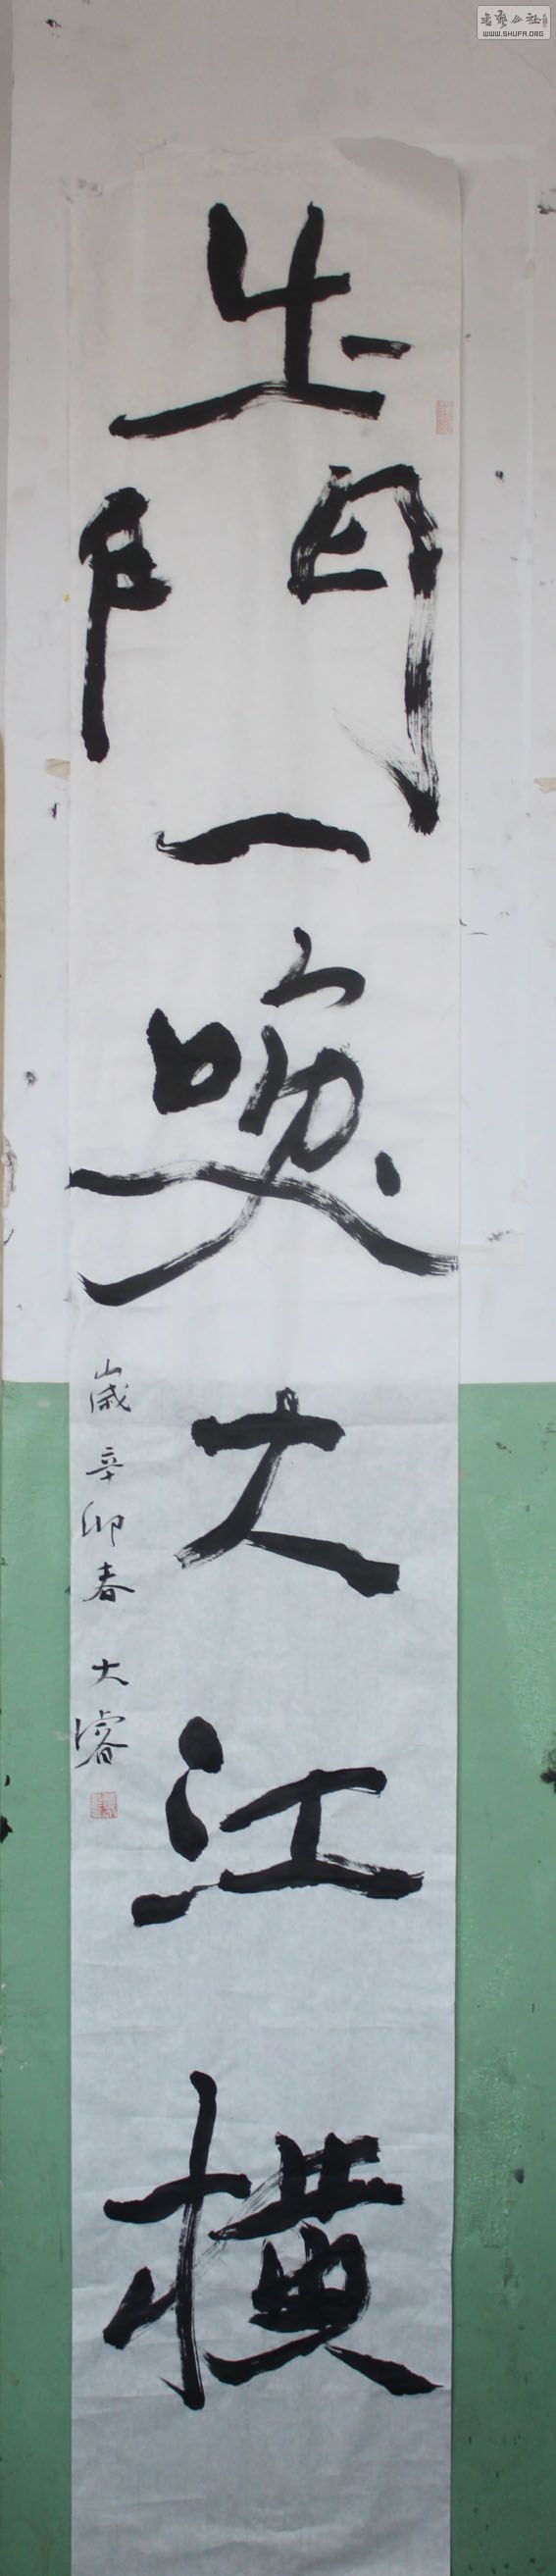 書藝公社
WWW.SHUFA.ORG
出門一喚大江橫
歲辛卯春 大濬